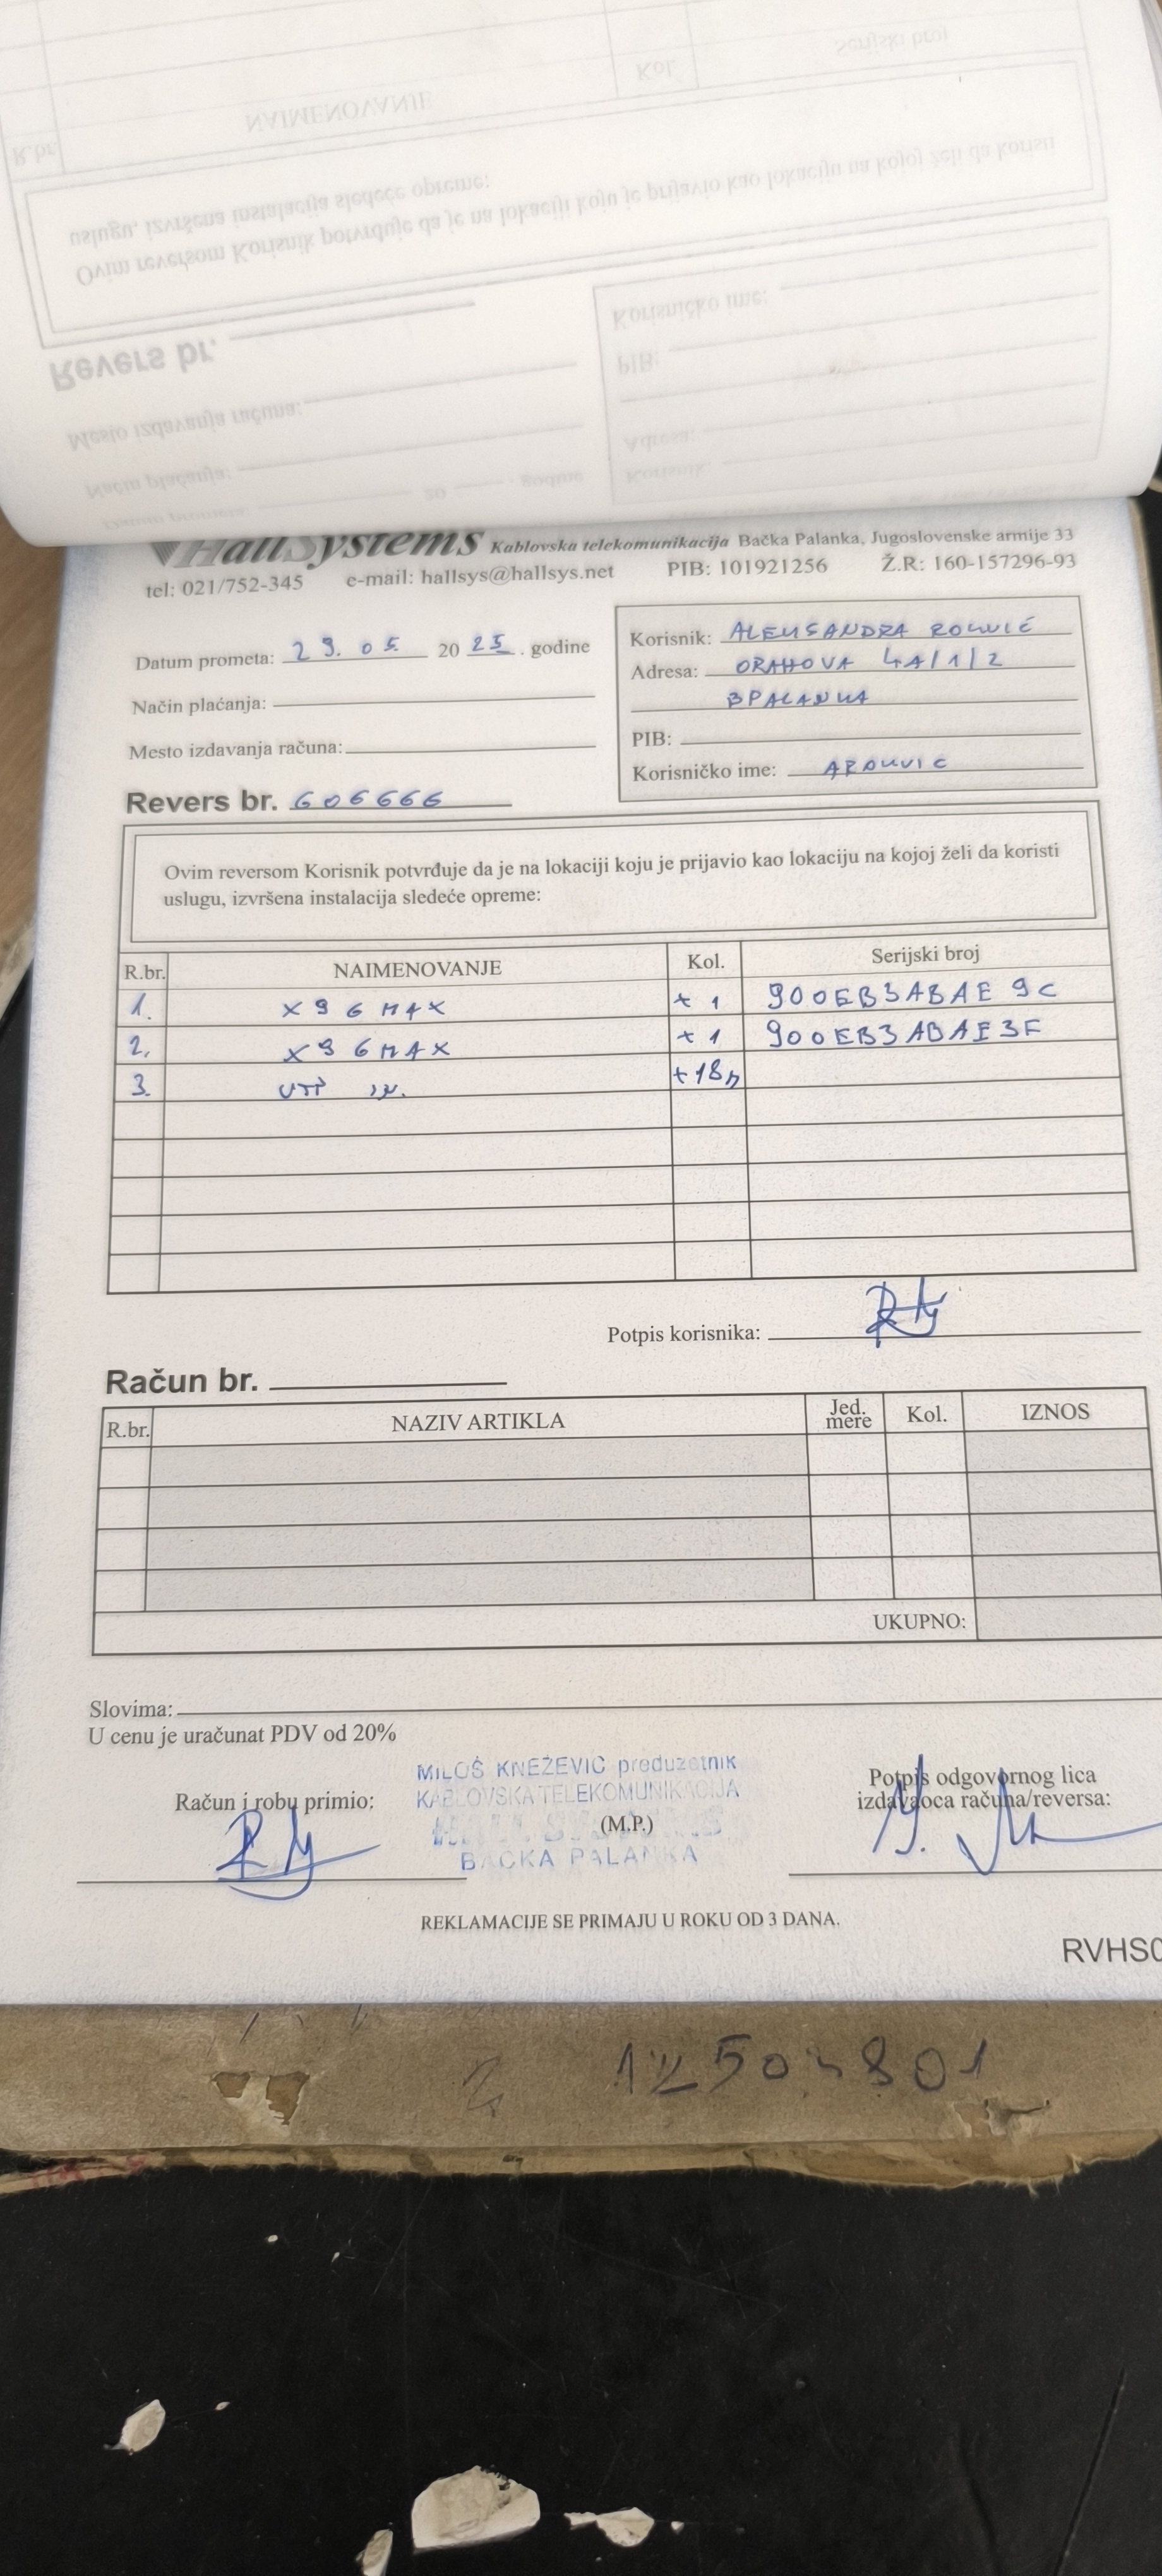 HallSystems Kablovska telekomunikacija Bačka Palanka, Jugoslovenske armije 33
tel: 021/752-345 e-mail: hallsys@hallsys.net PIB: 101921256 Ž.R: 160-157296-93
Datum prometa: 29. 05. 20 25 . godine
Način plaćanja:
Mesto izdavanja računa:
Korisnik: ALEKSANDRA ROKVIĆ
Adresa: ORAHOVA 4A/1/2
BPALANKA
PIB:
Korisničko ime: AROKVIC
Revers br. 606666
Ovim reversom Korisnik potvrđuje da je na lokaciji koju je prijavio kao lokaciju na kojoj želi da koristi
uslugu, izvršena instalacija sledeće opreme:
R.br. NAIMENOVANJE Kol. Serijski broj
1. X96 MAX +1 900EB3ABAE9C
2. X96MAX +1 900EB3ABAE3F
3. UTP +18m
Potpis korisnika:
Račun br.
R.br. NAZIV ARTIKLA Jed. mere Kol. IZNOS
UKUPNO:
Slovima:
U cenu je uračunat PDV od 20%
Račun i robu primio:
MILOŠ KNEŽEVIĆ preduzetnik
KABLOVSKA TELEKOMUNIKACIJA
HALL SYSTEMS
(M.P.)
BAČKA PALANKA
Potpis odgovornog lica
izdavaoca računa/reversa:
REKLAMACIJE SE PRIMAJU U ROKU OD 3 DANA.
RVHS0